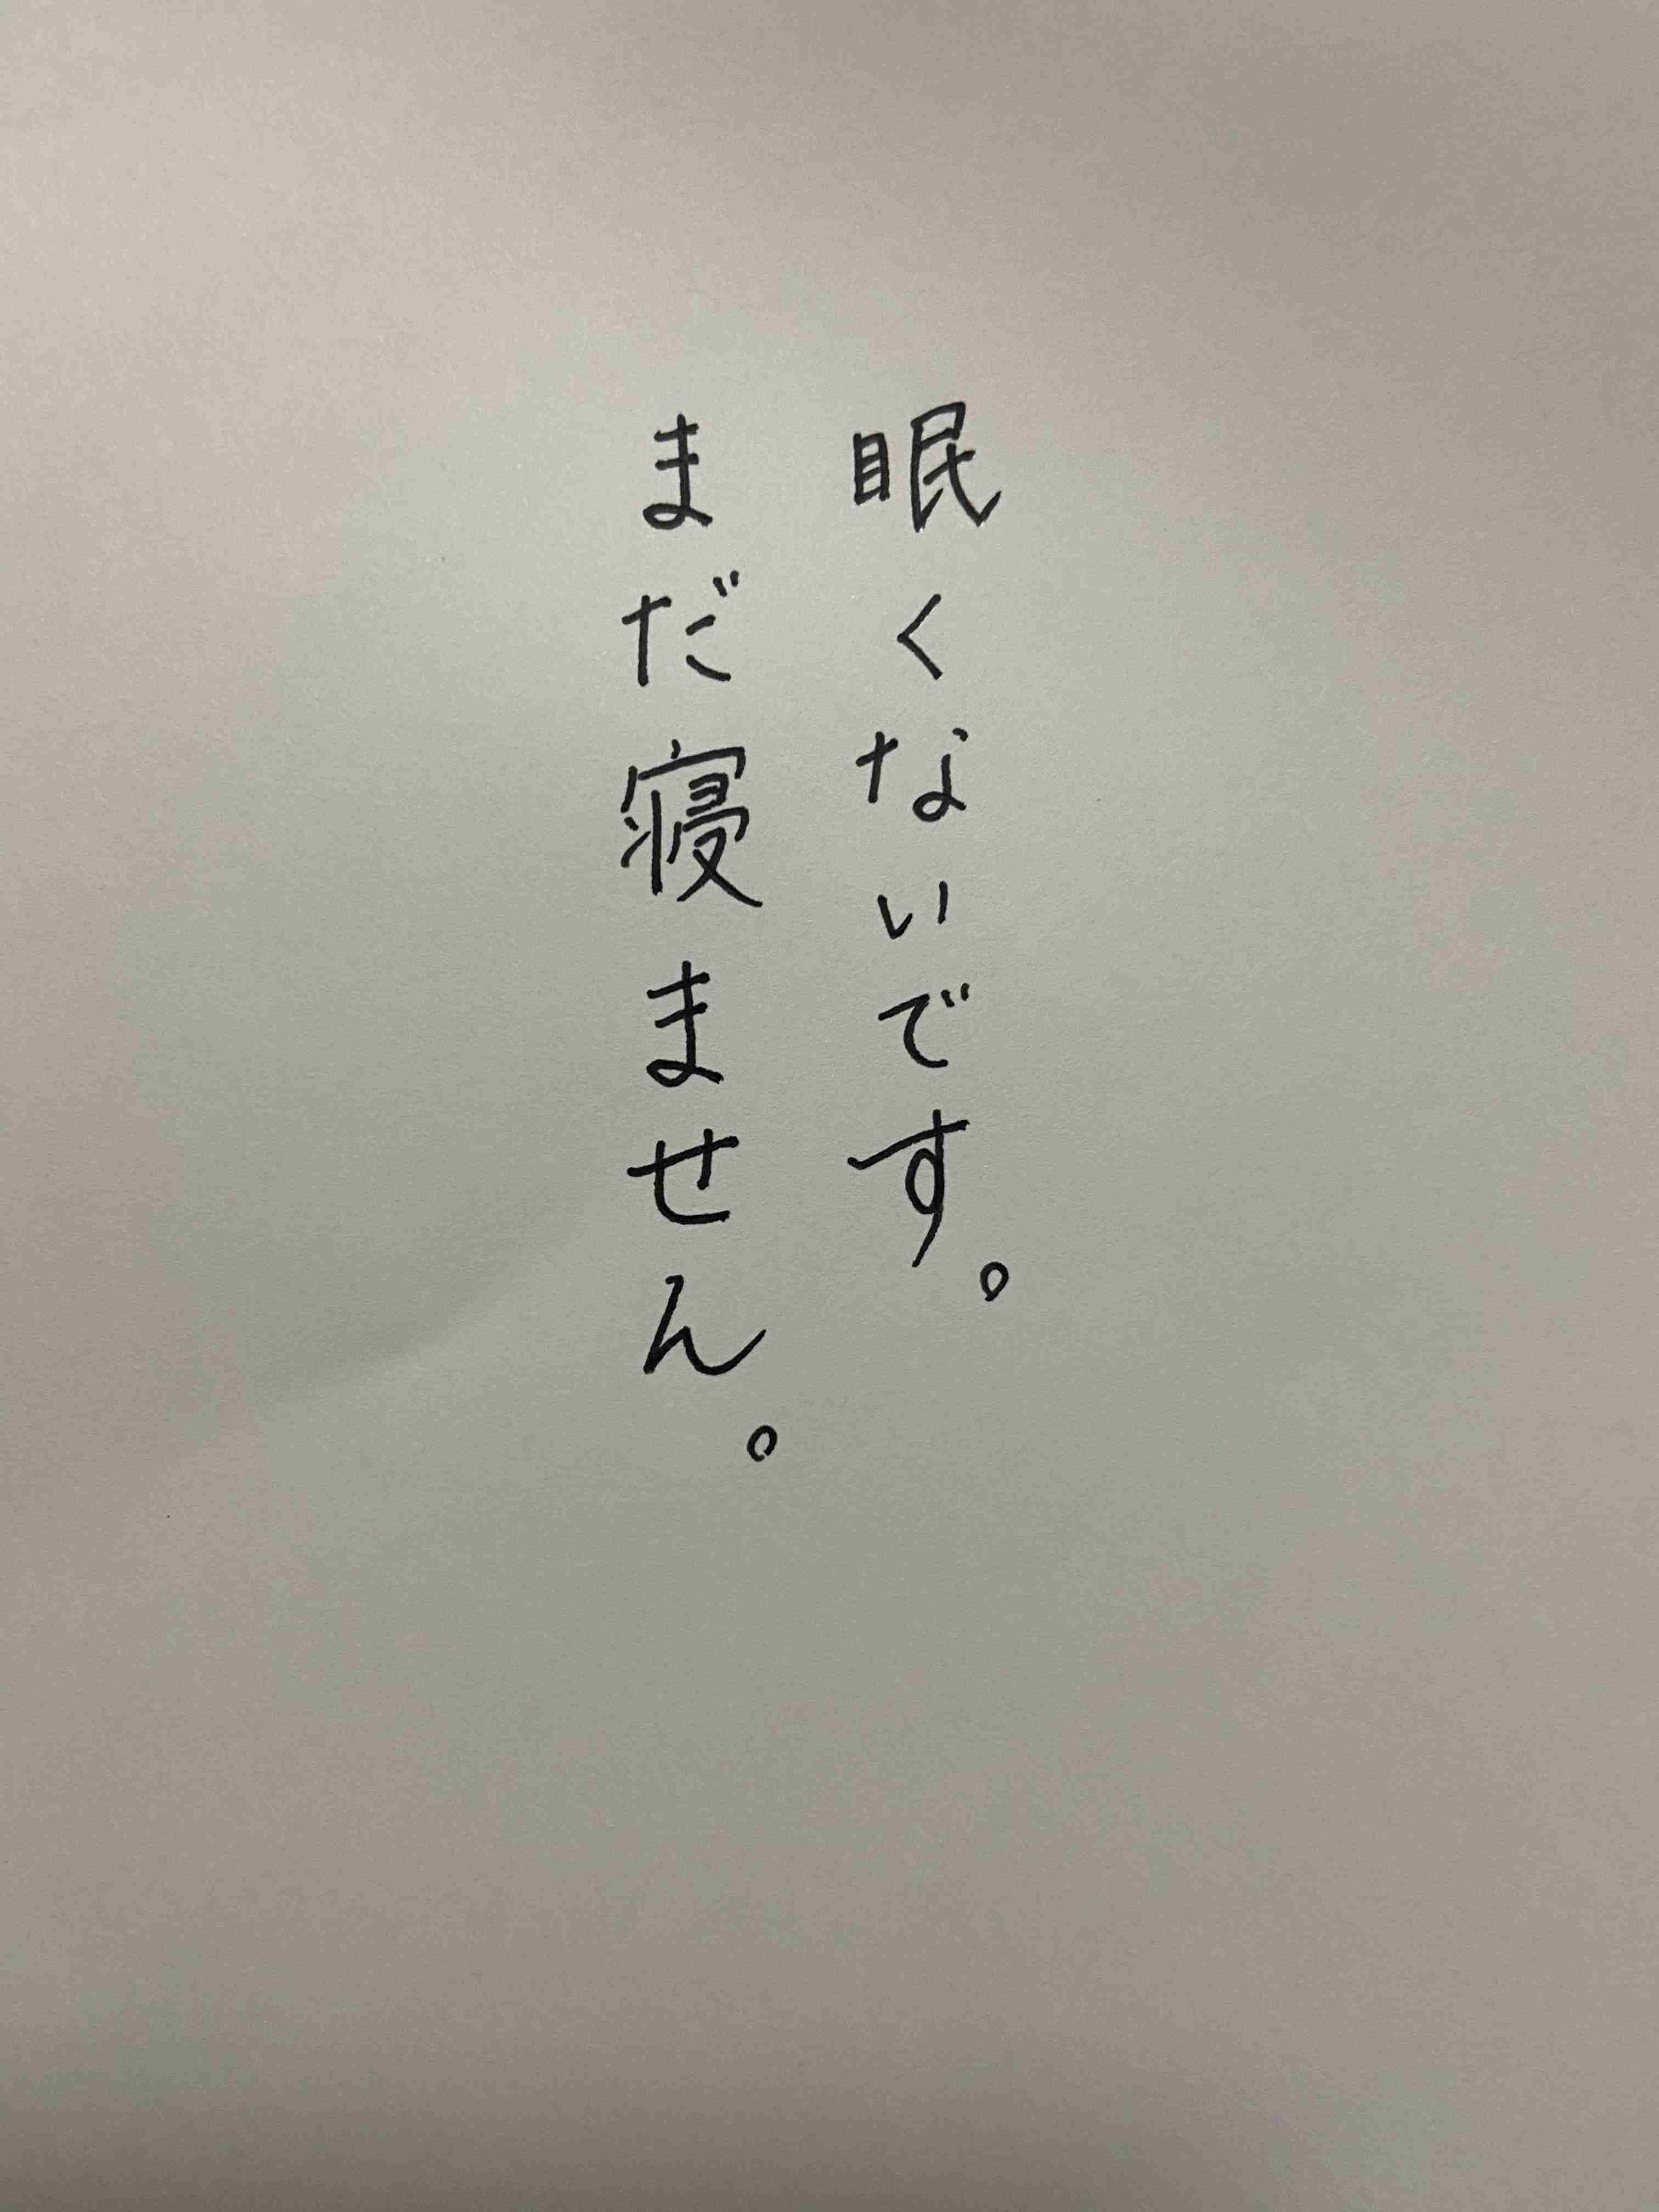 眠くないです。
まだ寝ません。